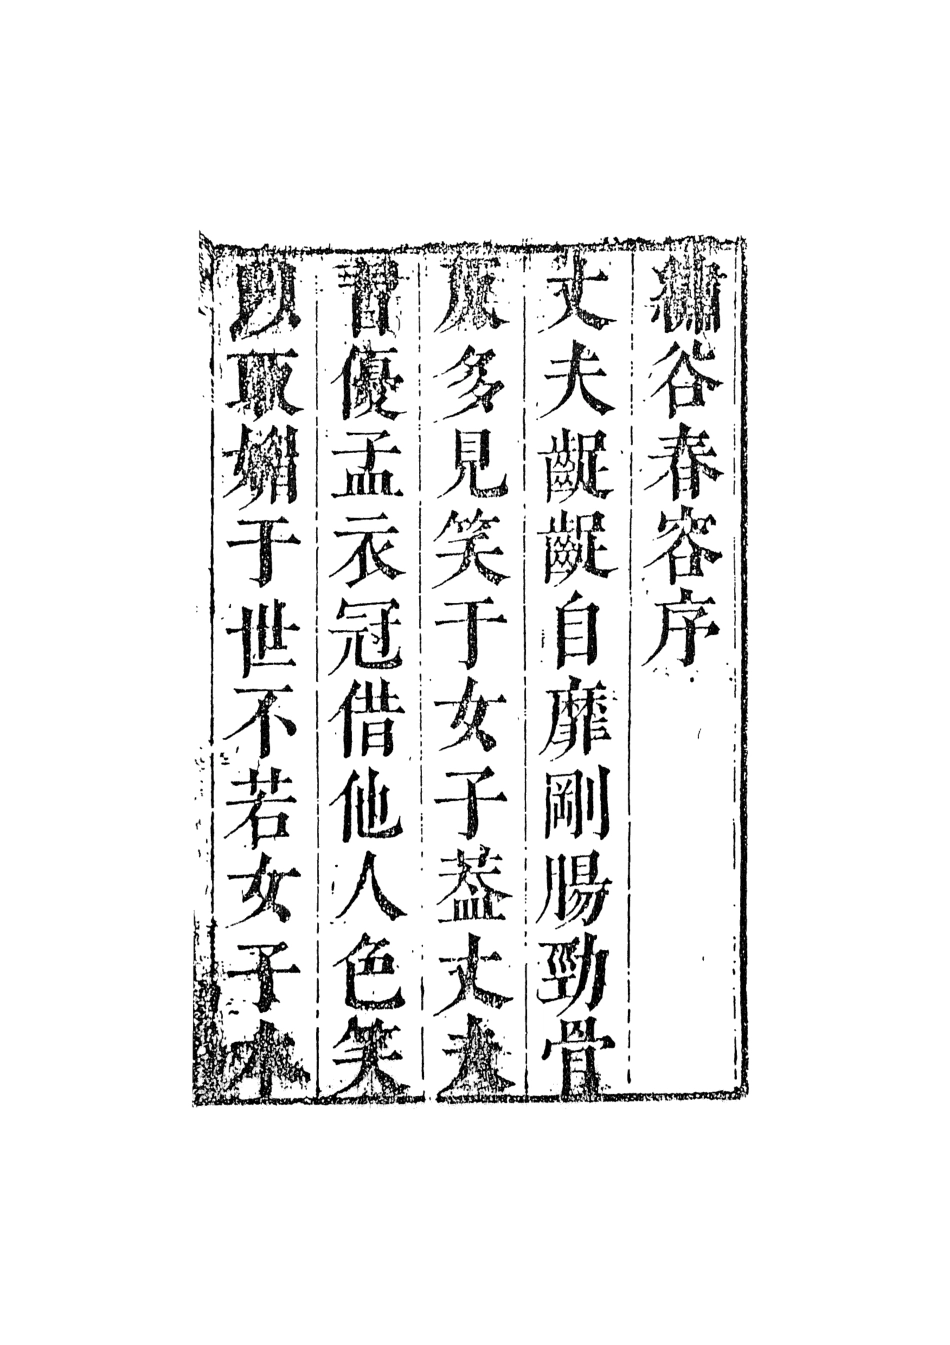 繡谷春容序
丈夫齪齪自靡剛腸勁骨
多見笑于女子葢丈夫
習優孟衣冠借他人色笑
以取媚于世不若女子本